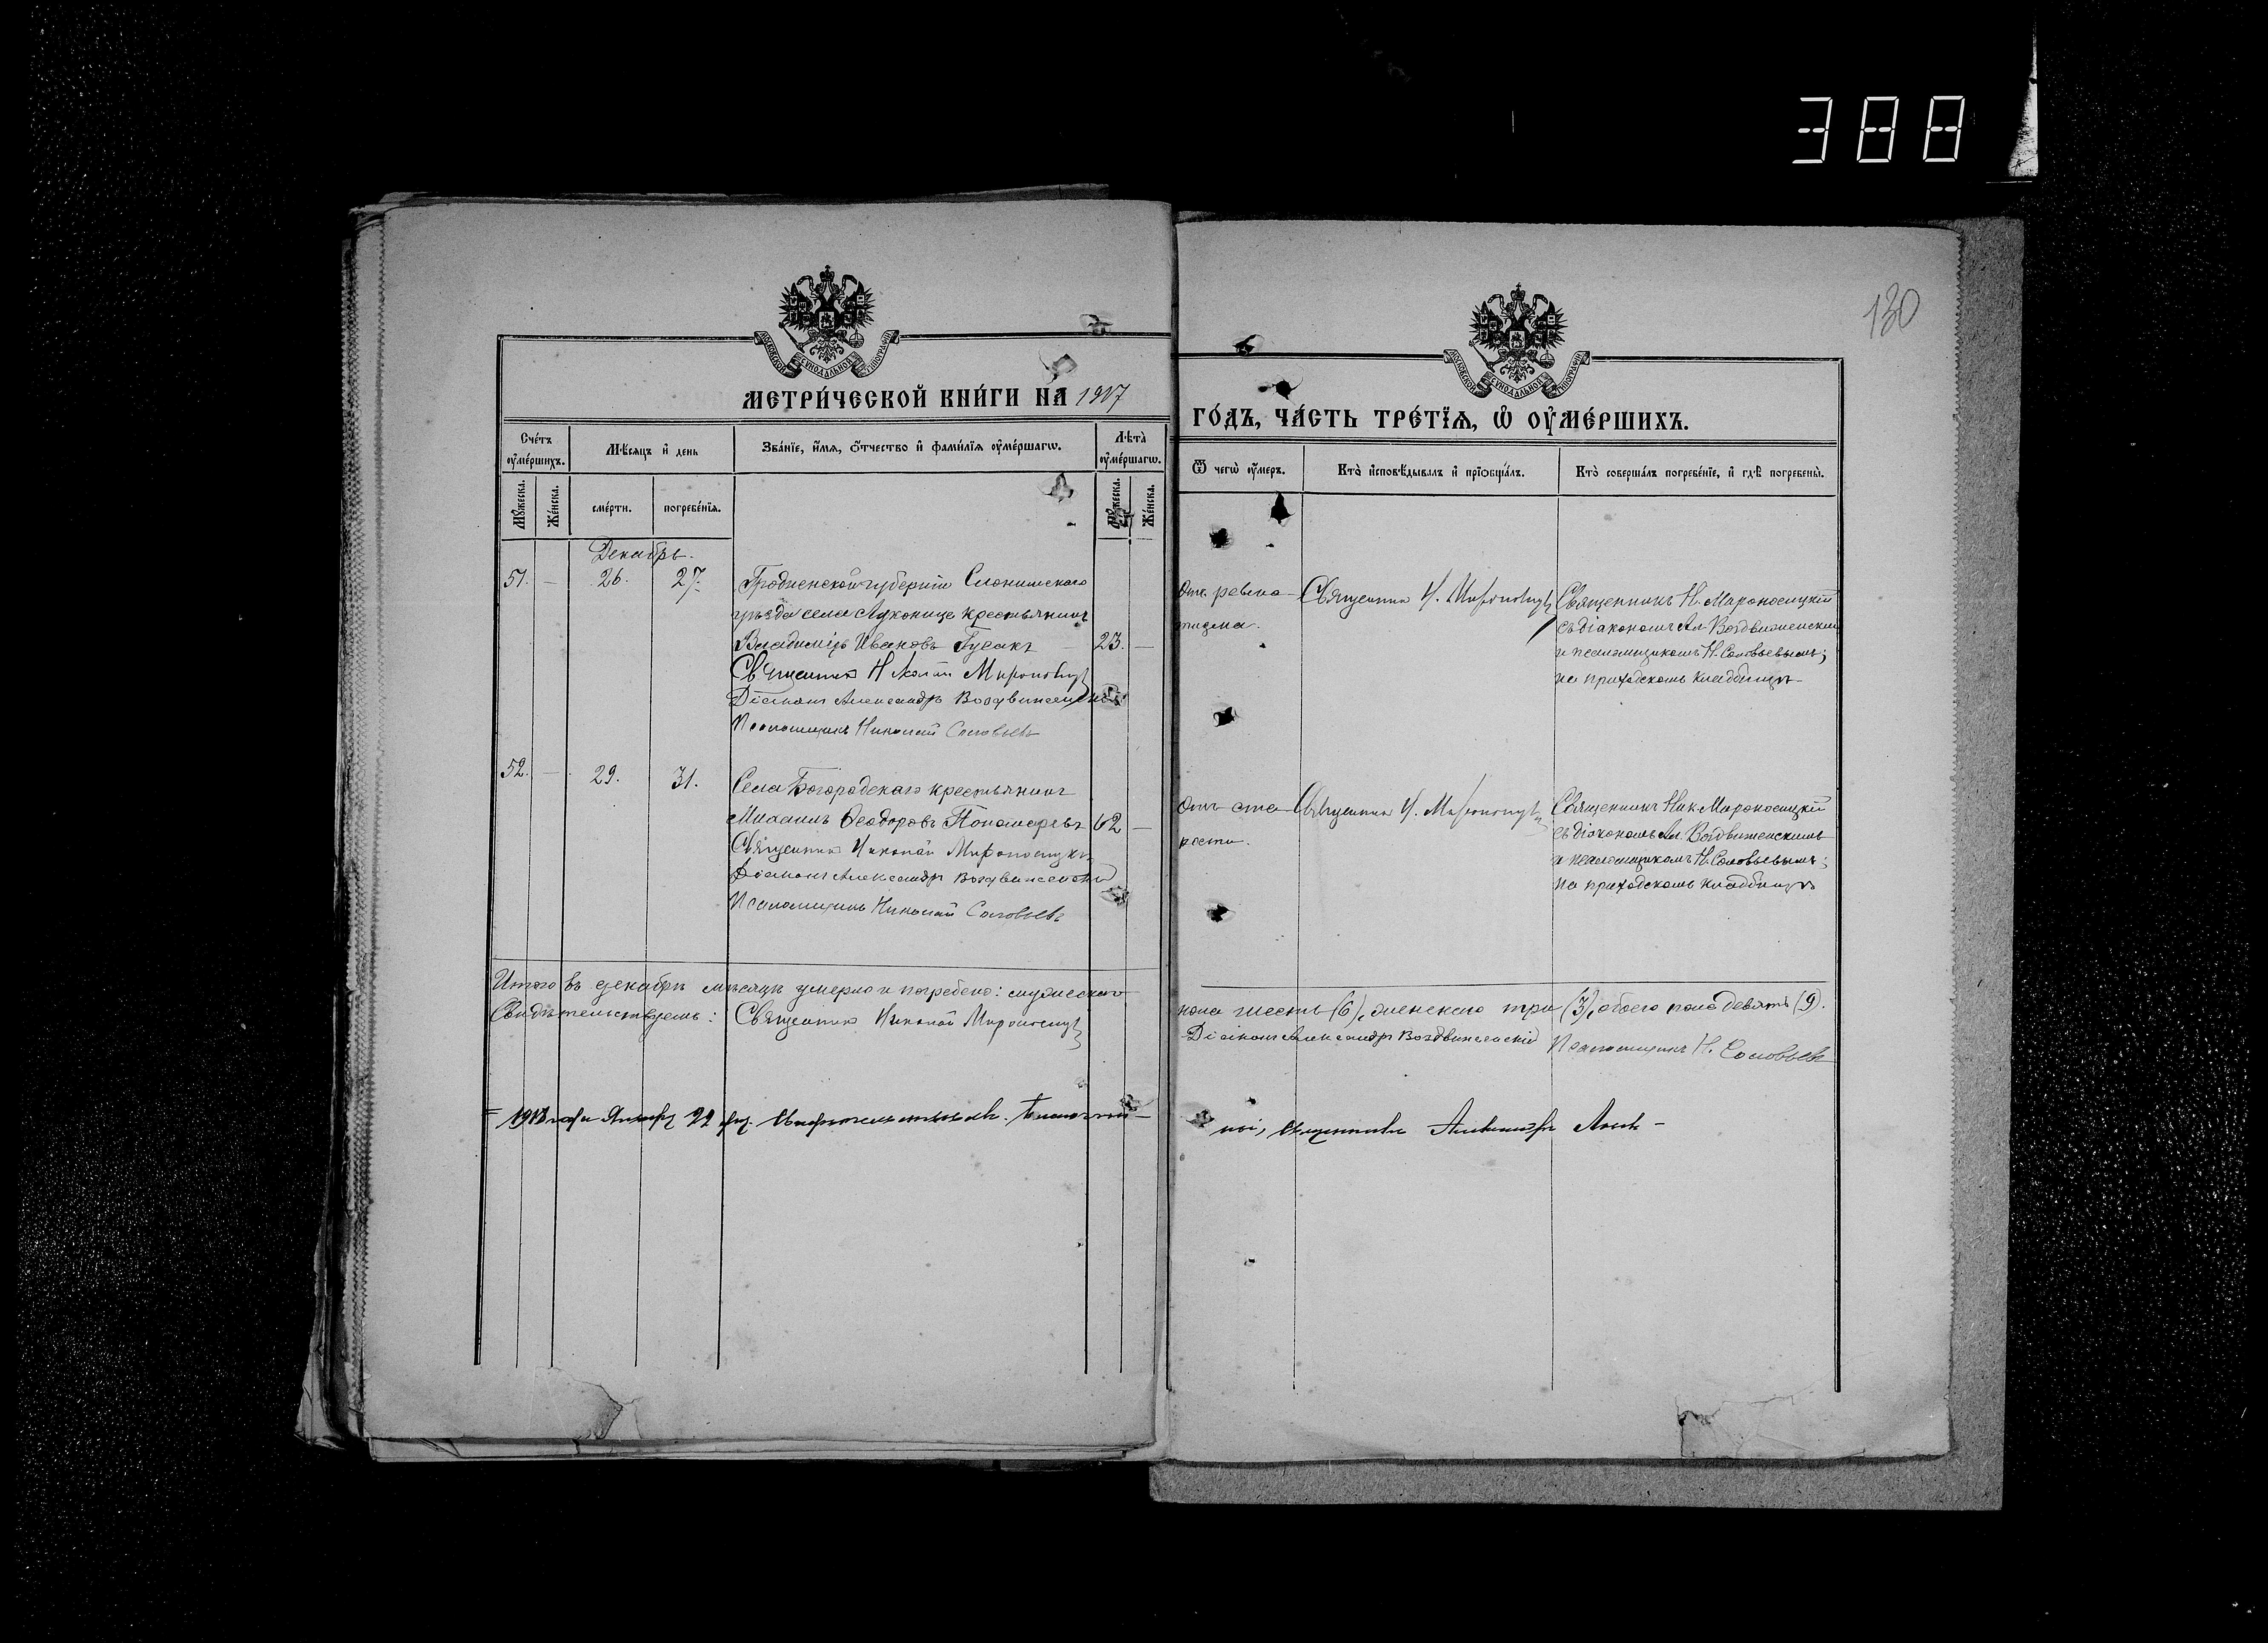 388
130
МОСКОВСКОЙ СѴНОДАЛЬНОЙ ТИПОГРАФІИ
МОСКОВСКОЙ СѴНОДАЛЬНОЙ ТИПОГРАФІИ
МЕТРИ́ЧЕСКОЙ КНИ́ГИ НА 1917
ГО́ДЪ, ЧА́СТЬ ТРЕ́ТЇѦ, Ѡ҆ ОУ҆МЕ́РШИХЪ.
Сче́тъ оу҆ме́ршихъ.
Мѣ́сѧцъ и҆ день
Зва́нїе, и҆́мѧ, ѻ҆́тчество и҆ фами́лїѧ оу҆ме́ршагѡ.
Лѣ́та оу҆ме́ршагѡ.
Ѿ чегѡ̀ оу҆́меръ.
Кто̀ и҆сповѣ́дывалъ и҆ прїѻбща́лъ.
Кто̀ соверша́лъ погребе́нїе, и҆ гдѣ̀ погребены̀.
Мꙋ́жеска.
Же́нска.
сме́рти.
погребе́нїѧ.
Мꙋ́жеска.
Же́нска.
Декабрь.
51. — 26. 27. Гродненской губерніи Слонимскаго
уѣзда села Луконица крестьянинъ
Владиміръ Ивановъ Гусакъ — 23. —
Священникъ Николай Мироносицкій
Діаконъ Александръ Воздвиженскій
Псаломщикъ Николай Соловьевъ
Отъ ревма-
тизма.
Священникъ Н. Мироносицкій
Священникъ Н. Мироносицкій
съ діакономъ Ал. Воздвиженским
и псаломщикомъ Н. Соловьевымъ;
на приходскомъ кладбищѣ
52. — 29. 31. Села Богородскаго крестьянинъ
Михаилъ Ѳеодоровъ Пономаревъ 62 —
Священникъ Николай Мироносицкій
Діаконъ Александръ Воздвиженскій
Псаломщикъ Николай Соловьевъ
Отъ ста-
рости.
Священникъ Н. Мироносицкій
Священникъ Ник. Мироносицкій
съ діакономъ Ал. Воздвиженскимъ
и псаломщикомъ Н. Соловьевымъ;
на приходскомъ кладбищѣ
Итого въ декабрѣ мѣсяцѣ умерло и погребено: мужескаго
пола шесть (6), женскаго три (3), обоего пола девять (9).
Свидѣтельствуемъ: Священникъ Николай Мироносицкій
Діаконъ Александръ Воздвиженскій Псаломщикъ Н. Соловьевъ
1918 года Января 22 дня. Свидѣтельствовалъ. Благочин-
ный, священникъ Александръ